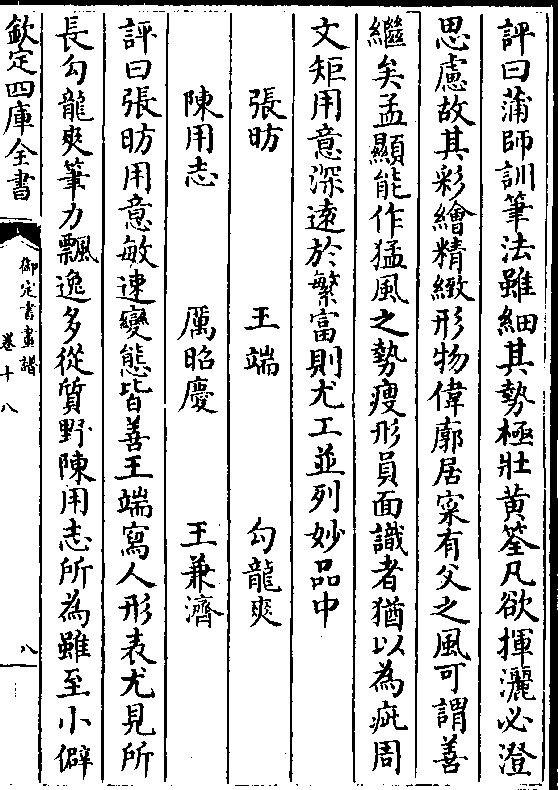 評曰蒲師訓筆法雖細其勢極壯黄筌凡欲揮灑必澄
思慮故其彩繪精緻形物偉廓居寀有父之風可謂善
繼矣孟顯能作猛風之勢瘦形員面識者猶以為疵周
文矩用意深逺於繁富則尤工並列妙品中
張昉 王端 勾龍爽
陳用志 厲昭慶 王兼濟
評曰張昉用意敏速變態皆善王端寫人形表尤見所
長勾龍爽筆力飄逸多從質野陳用志所為雖至小僻
欽定四庫全書
御定書畫譜
卷十八
八